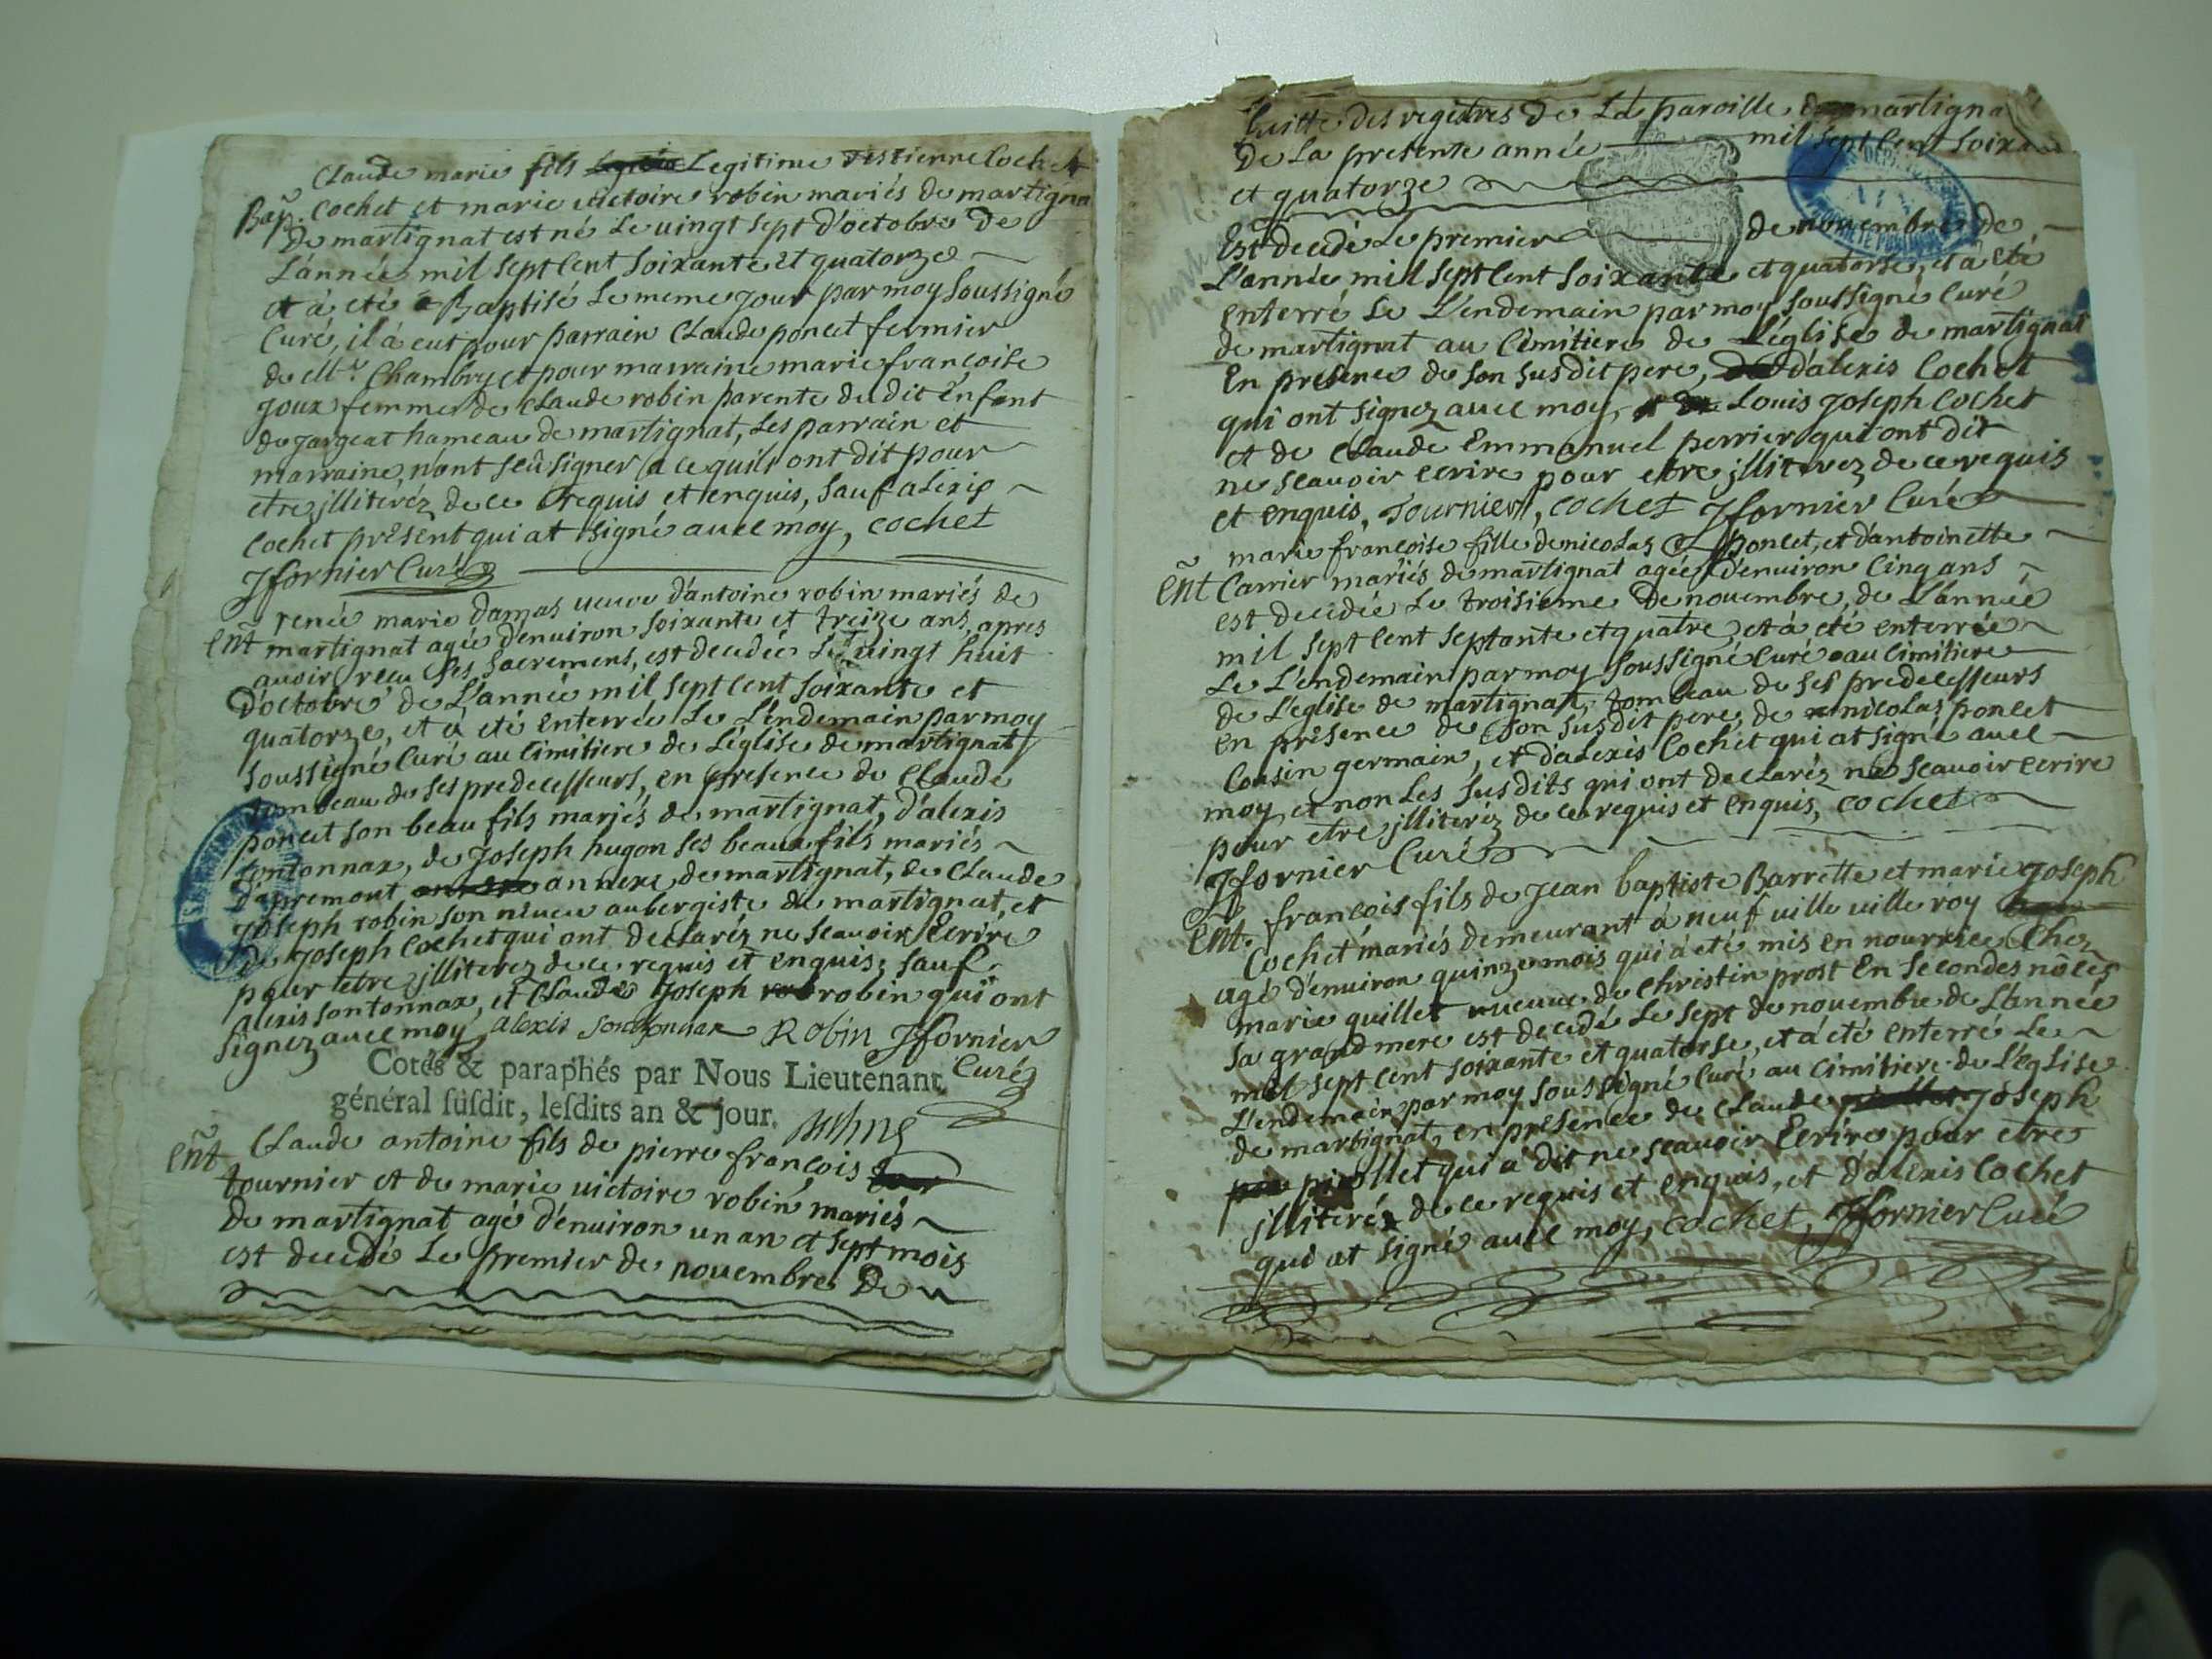 Claude marie fils Legitime d'estienne Cochet
Bap. Cochet et marie victoire robin mariés de martigna
de martignat est né Le uingt sept d'octobre de
L'année mil sept Cent Soixante et quatorze
et à eté Baptisé Le meme jour par moy Soussigné
Curé, il à eut pour parrain Claude poncet fermier
de Mr. Chambry et pour marraine marie françoise
joux femme de Claude robin parente du dit enfant
de jargeat hameau de martignat, Les parrain et
marraine, n'ont sçû signer a ce quils ont dit pour
etre jlliteréz de ce requis et enquis, Sauf alexis
Cochet présent qui at signé auec moy, cochet
Jfornier Curé
renée marie damas ueuve d'antoine robin mariés de
Ent martignat agée d'enuiron Soixante et treize ans, apres
auoir reçu ses Sacremens, est decedée Le uingt huit
d'octobre de L'année mil Sept Cent Soixante et
quatorze, et à eté enterrée Le L'endemain par moy
Soussigné Curé au Cimitiere de L'église de martignat
tombeau de ses predecesseurs, en presence de Claude
poncet son beau fils mariés de martignat, d'alexis
Sontonnax, de Joseph hugon ses beaux fils mariés
d'apremont annexe de martignat, de Claude
joseph robin son neueu aubergiste de martignat, et
de joseph Cochet qui ont declaréz ne sçauoir Ecrire
pour etre jlliterez de ce requis et enquis, Sauf
alexis Sontonnax, et Claude Joseph robin qui ont
Signez auec moy alexis sontonnax Robin Jfornier
Curé
Cotés & paraphés par Nous Lieutenant
général suſdit, leſdits an & jour.
Ent Claude antoine fils de pierre françois
tournier et de marie uictoire robin mariés
de martignat agé d'enuiron un an et sept mois
est decedé Le premier de nouembre de
Suitte des registres de La paroisse de martigna
de La presente année mil Sept Cent Soixan
et quatorze
Est decedé Le premier de nouembre de
L'année mil Sept Cent Soixante et quatorse, et à eté
enterré Le L'endemain par moy soussigné Curé
de martignat au Cimitiere de L'église de martignat
en presence de son susdit pere, d'alexis Cochet
qui ont signez auec moy, Louis joseph Cochet
et de Claude Emmanuel perrier qui ont dit
ne sçauoir ecrire pour etre jlliterez de ce requis
et enquis, Tournier, cochet Jfornier Curé
marie françoise fille de nicolas poncet, et d'antoinette
Ent Carrier mariés de martignat agée d'enuiron Cinq ans
est decedée Le troisieme de nouembre, de L'année
mil sept Cent Septante et quatre, et à eté enterrée
Le L'endemain par moy Soussigné Curé au Cimitiere
de L'église de martignat, tombeau de ses predecesseurs
en présence de son susdit pere, de nicolas poncet
Cousin germain, et d'alexis Cochet qui at signé auec
moy, et non Les susdits qui ont declaréz ne sçauoir ecrire
pour etre jlliteréz de ce requis et enquis, cochet
Jfornier Curé
françois fils de jean baptiste Barrette et marie joseph
Ent. Cochet mariés demeurant à neuf uille uille roy
agé d'enuiron quinze mois qui à eté mis en nourrice Chez
marie quillet ueuue de Christin prost En Secondes nôces
sa grand mere est decedé Le sept de nouembre de L'année
mil sept Cent soixante et quatorse, et à eté enterré Le
L'endemain par moy soussigné Curé au Cimitiere de L'eglise
de martignat, en présence de Claude joseph
piollet qui à dit ne sçauoir Ecrire pour etre
jlliteréz de ce requis et enquis, et d'alexis Cochet
qui at signé auec moy, cochet, Jfornier Curé